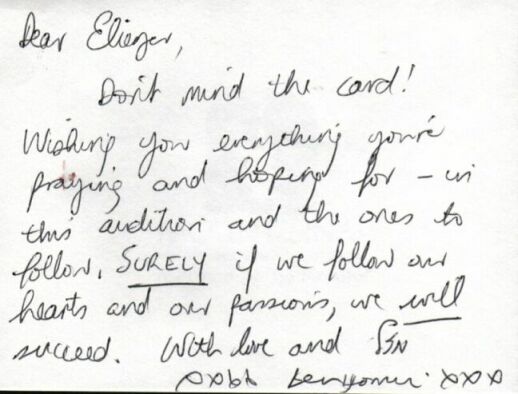 Dear Eliezer,
Don't mind the card!
Wishing you everything you're
praying and hoping for – in
this audition and the ones to
follow. SURELY if we follow our
hearts and our passions, we will
succeed. With love and מזל
benyomin. xxx